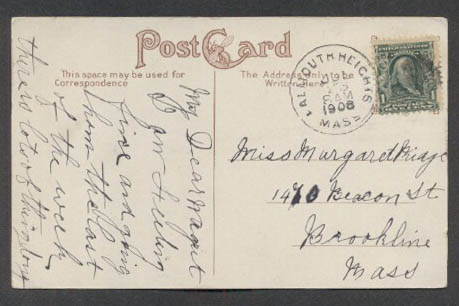 Post Card
This space may be used for
Correspondence
The Address Only to be
Written Here
FALMOUTH HEIGHTS
AM
1908
MASS
1
My Dear Margret
I am feeling
fine and going
home the last
of the week
there is lots of things doing
Miss Margaret Ridge
1470 Beacon St
Brookline
Mass